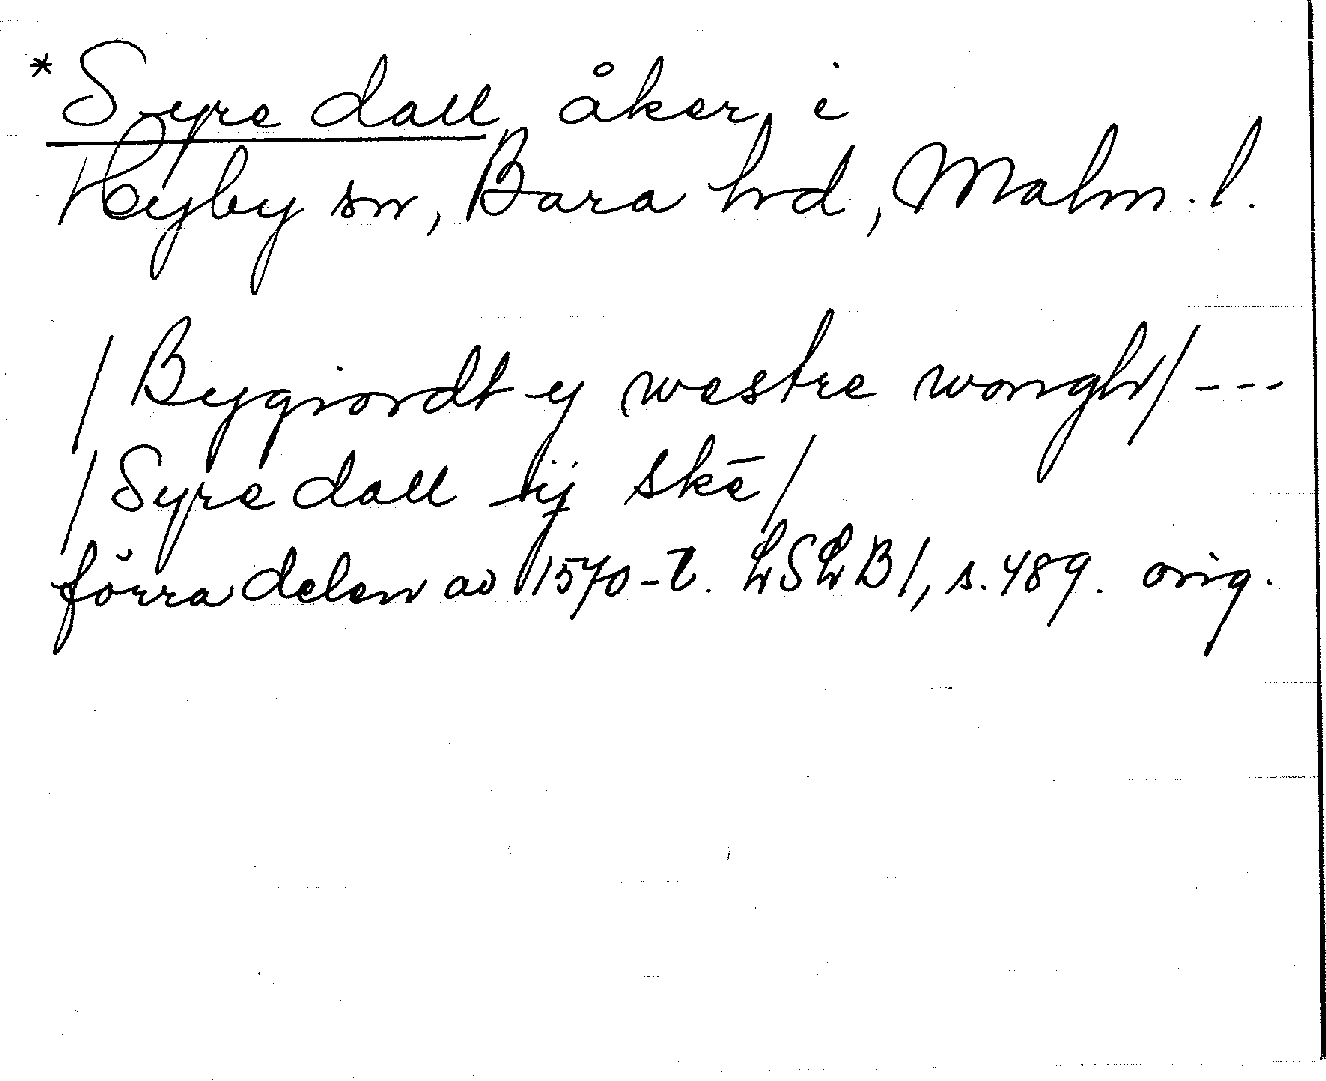 *Syre dall, åker i
Hyby sn, Bara hd, Malm. l.
/Bygiordt y westre wongh/ ---
/Syre dall ij skē/
förra delen av 1570-t. LSLB1, s. 489. orig.